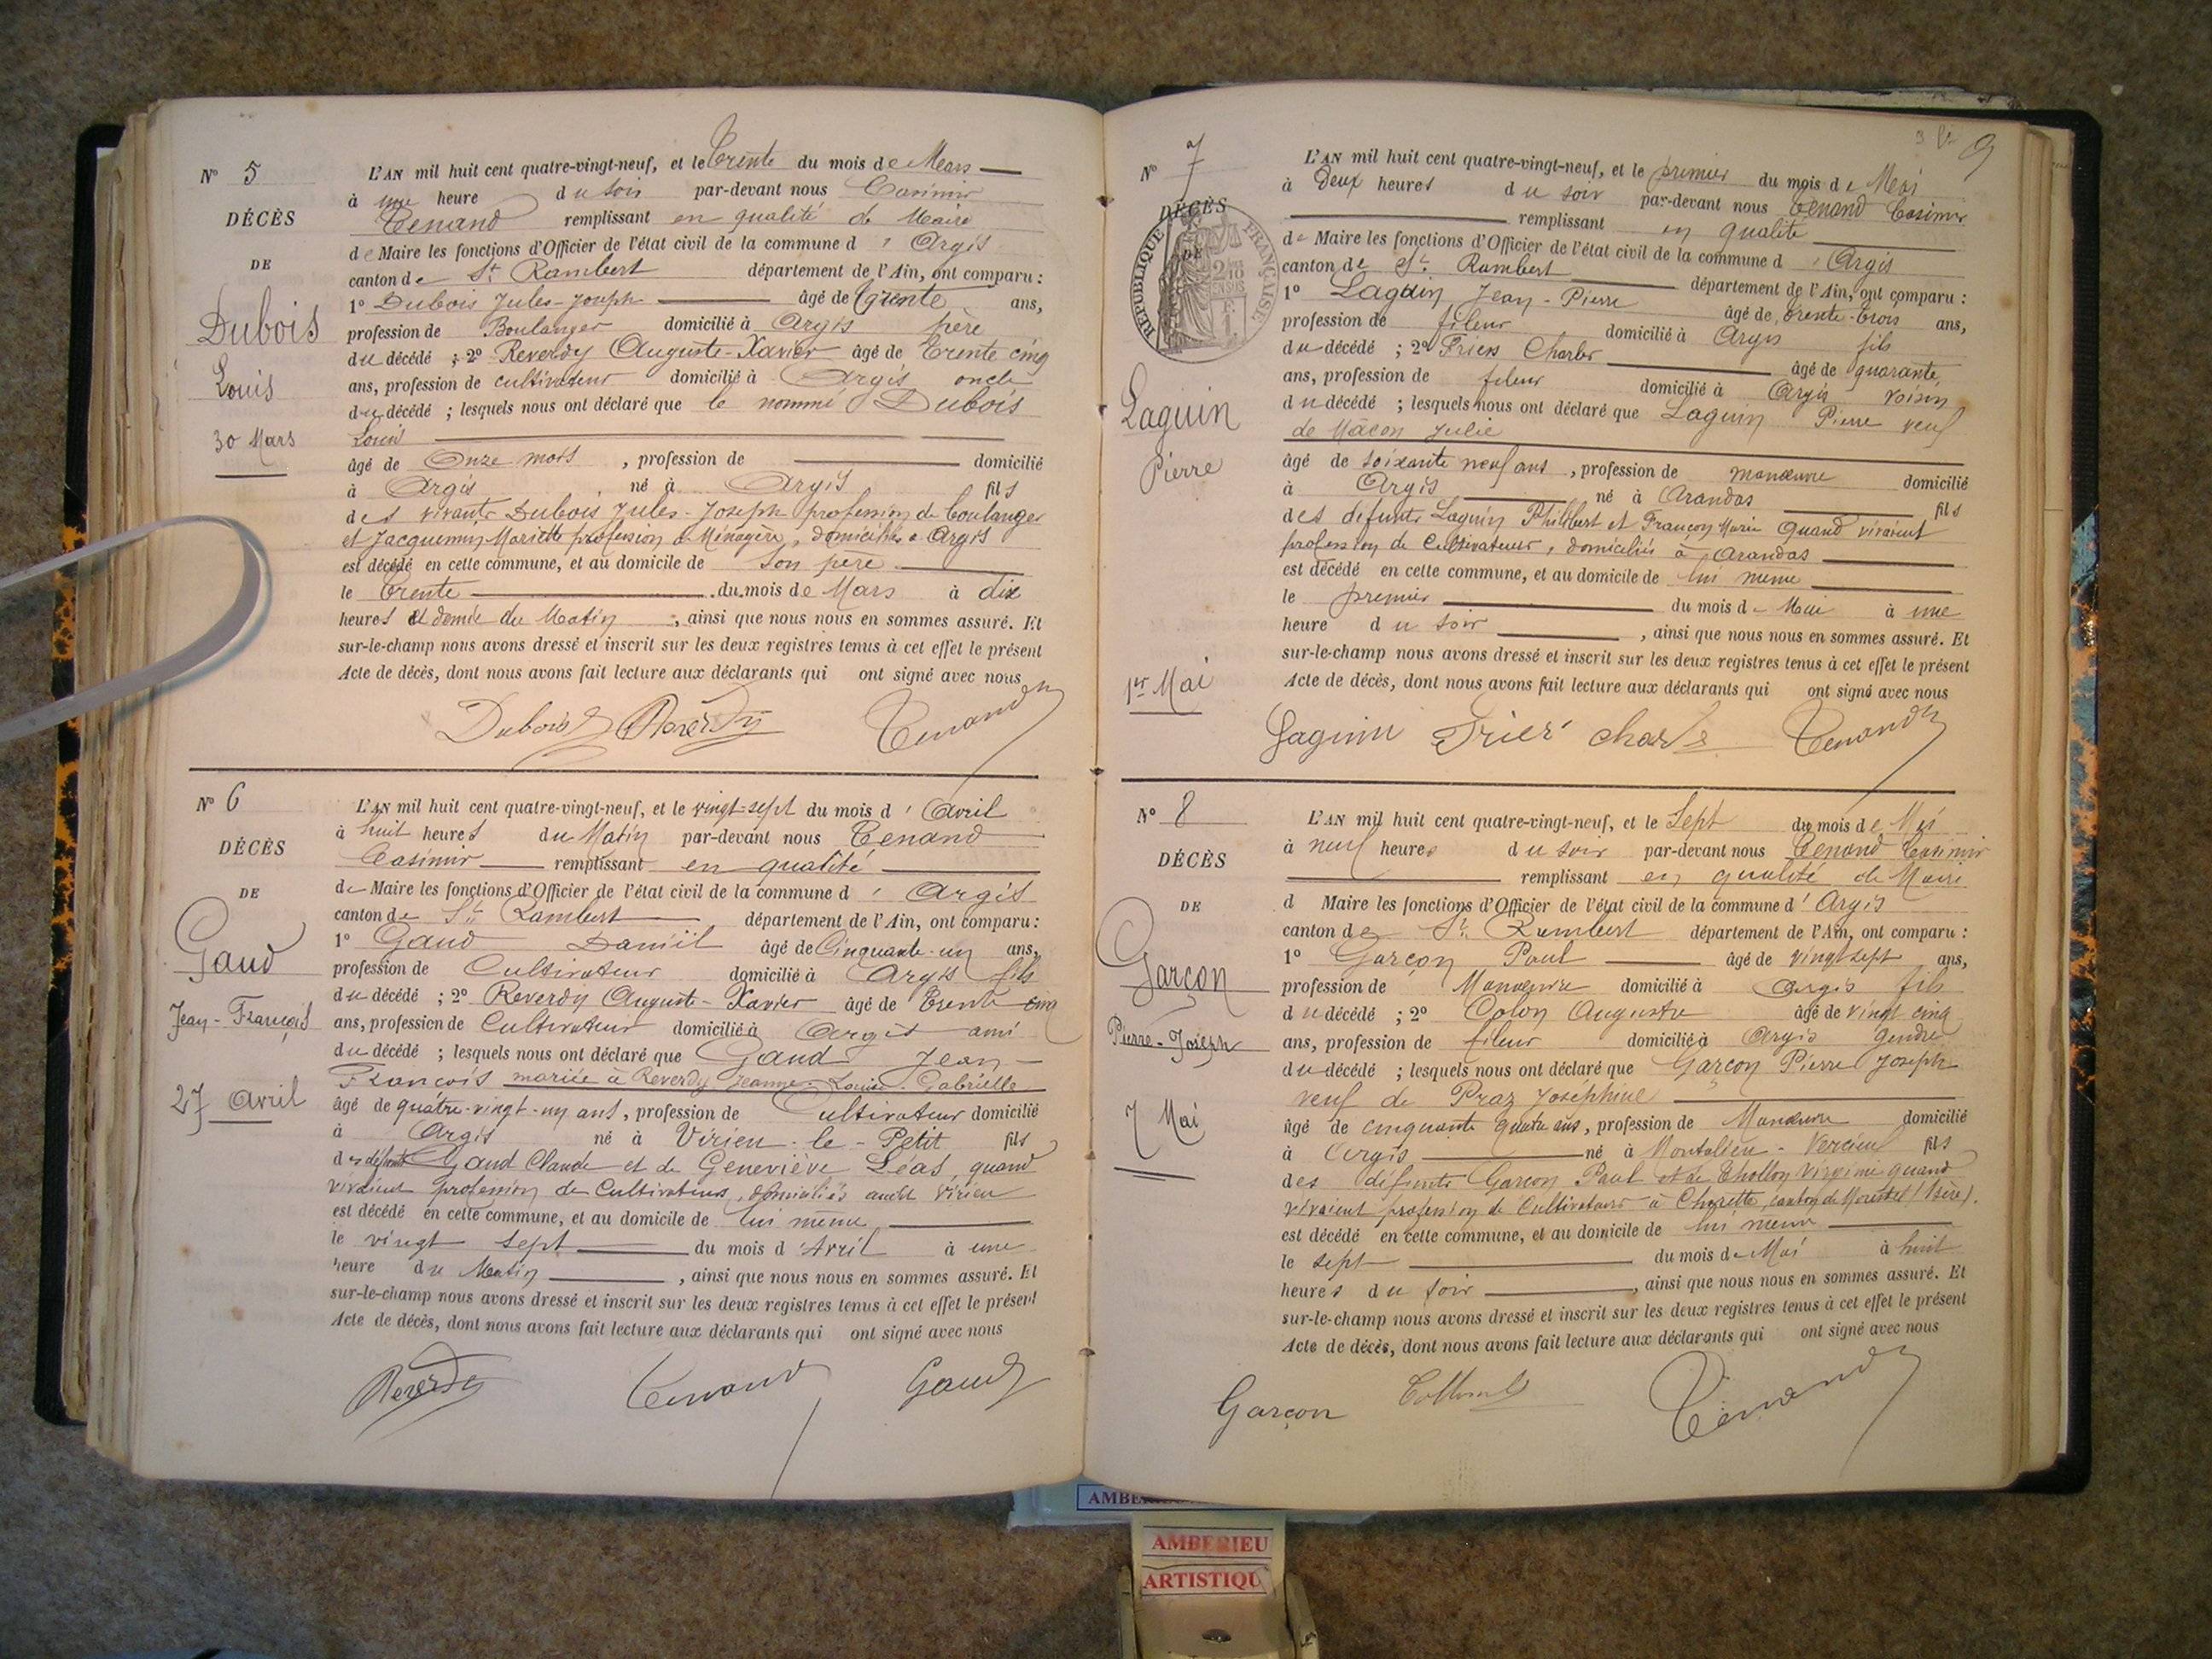 N° 5
DÉCÈS
DE
Dubois
Louis
30 Mars
L'AN mil huit cent quatre-vingt-neuf, et le Trente du mois de Mars
à une heure du soir par-devant nous Casimir
Tenand remplissant en qualité de Maire
de Maire les fonctions d'Officier de l'état civil de la commune d'Argis
canton de St Rambert département de l'Ain, ont comparu :
1° Dubois Jules-Joseph âgé de trente ans,
profession de Boulanger domicilié à Argis père
du décédé ; 2° Reverdy Auguste-Xavier âgé de Trente cinq
ans, profession de cultivateur domicilié à Argis oncle
du décédé ; lesquels nous ont déclaré que le nommé Dubois
Louis
âgé de Onze mois, profession de domicilié
à Argis né à Argis fils
des vivants Dubois Jules-Joseph profession de boulanger
et Jacquemin Mariette profession de Ménagère, domiciliés à Argis
est décédé en cette commune, et au domicile de son père
le Trente du mois de Mars à dix
heures et demie du Matin, ainsi que nous nous en sommes assuré. Et
sur-le-champ nous avons dressé et inscrit sur les deux registres tenus à cet effet le présent
Acte de décès, dont nous avons fait lecture aux déclarants qui ont signé avec nous
Dubois Reverdy Tenand
N° 6
DÉCÈS
DE
Gaud
Jean-François
27 Avril
L'AN mil huit cent quatre-vingt-neuf, et le vingt-sept du mois d'Avril
à huit heures du Matin par-devant nous Tenand
Casimir remplissant en qualité
de Maire les fonctions d'Officier de l'état civil de la commune d'Argis
canton de St Rambert département de l'Ain, ont comparu :
1° Gaud Daniil âgé de Cinquante-un ans,
profession de Cultivateur domicilié à Argis fils
du décédé ; 2° Reverdy Auguste-Xavier âgé de Trente cinq
ans, profession de Cultivateur domicilié à Argis ami
du décédé ; lesquels nous ont déclaré que Gaud Jean-
François mariée à Reverdy Jeanne-Louise-Gabrielle
âgé de quatre-vingt-un ans, profession de Cultivateur domicilié
à Argis né à Virieu-le-Petit fils
des défunts Gaud Claude et de Geneviève Léas, quand
vivaient profession de Cultivateurs, domiciliés audit Virieu
est décédé en cette commune, et au domicile de lui même
le vingt sept du mois d'Avril à une
heure du Matin, ainsi que nous nous en sommes assuré. Et
sur-le-champ nous avons dressé et inscrit sur les deux registres tenus à cet effet le présent
Acte de décès, dont nous avons fait lecture aux déclarants qui ont signé avec nous
Reverdy Tenand Gaud
9
N° 7
DÉCÈS
DE
RÉPUBLIQUE FRANÇAISE
Laguin
Pierre
1er Mai
L'AN mil huit cent quatre-vingt-neuf, et le premier du mois de Mai
à Deux heures du soir par-devant nous Tenand Casimir
remplissant en qualité
de Maire les fonctions d'Officier de l'état civil de la commune d'Argis
canton de St Rambert département de l'Ain, ont comparu :
1° Laguin Jean-Pierre âgé de trente-trois ans,
profession de fileur domicilié à Argis fils
du décédé ; 2° Friès Charles âgé de quarante,
ans, profession de fileur domicilié à Argis voisin
du décédé ; lesquels nous ont déclaré que Laguin Pierre veuf
de Mâcon Julie
âgé de soixante neuf ans, profession de manœuvre domicilié
à Argis né à Arandas fils
des défunts Laguin Philibert et Françon Marie Quand vivaient
profession de Cultivateurs, domiciliés à Arandas
est décédé en cette commune, et au domicile de lui même
le premier du mois de Mai à une
heure du soir, ainsi que nous nous en sommes assuré. Et
sur-le-champ nous avons dressé et inscrit sur les deux registres tenus à cet effet le présent
Acte de décès, dont nous avons fait lecture aux déclarants qui ont signé avec nous
Laguin Friès Charles Tenand
N° 8
DÉCÈS
DE
Garçon
Pierre-Joseph
7 Mai
L'AN mil huit cent quatre-vingt-neuf, et le Sept du mois de Mai
à neuf heures du soir par-devant nous Tenand Casimir
remplissant en qualité de Maire
d Maire les fonctions d'Officier de l'état civil de la commune d'Argis
canton de St Rambert département de l'Ain, ont comparu :
1° Garçon Paul âgé de vingt sept ans,
profession de Manœuvre domicilié à Argis fils
du décédé ; 2° Colon Augustre âgé de vingt cinq
ans, profession de fileur domicilié à Argis gendre
du décédé ; lesquels nous ont déclaré que Garçon Pierre Joseph
veuf de Praz Joséphine
âgé de cinquante quatre ans, profession de Manœuvre domicilié
à Argis né à Montalieu-Vercieu fils
des défunts Garçon Paul et de Thollon Virginie quand
vivaient profession de Cultivateurs à Charette, canton de Morestel (Isère).
est décédé en cette commune, et au domicile de lui même
le sept du mois de Mai à huit
heures du soir, ainsi que nous nous en sommes assuré. Et
sur-le-champ nous avons dressé et inscrit sur les deux registres tenus à cet effet le présent
Acte de décès, dont nous avons fait lecture aux déclarants qui ont signé avec nous
Garçon Tenand
AMBERIEU
ARTISTIQU